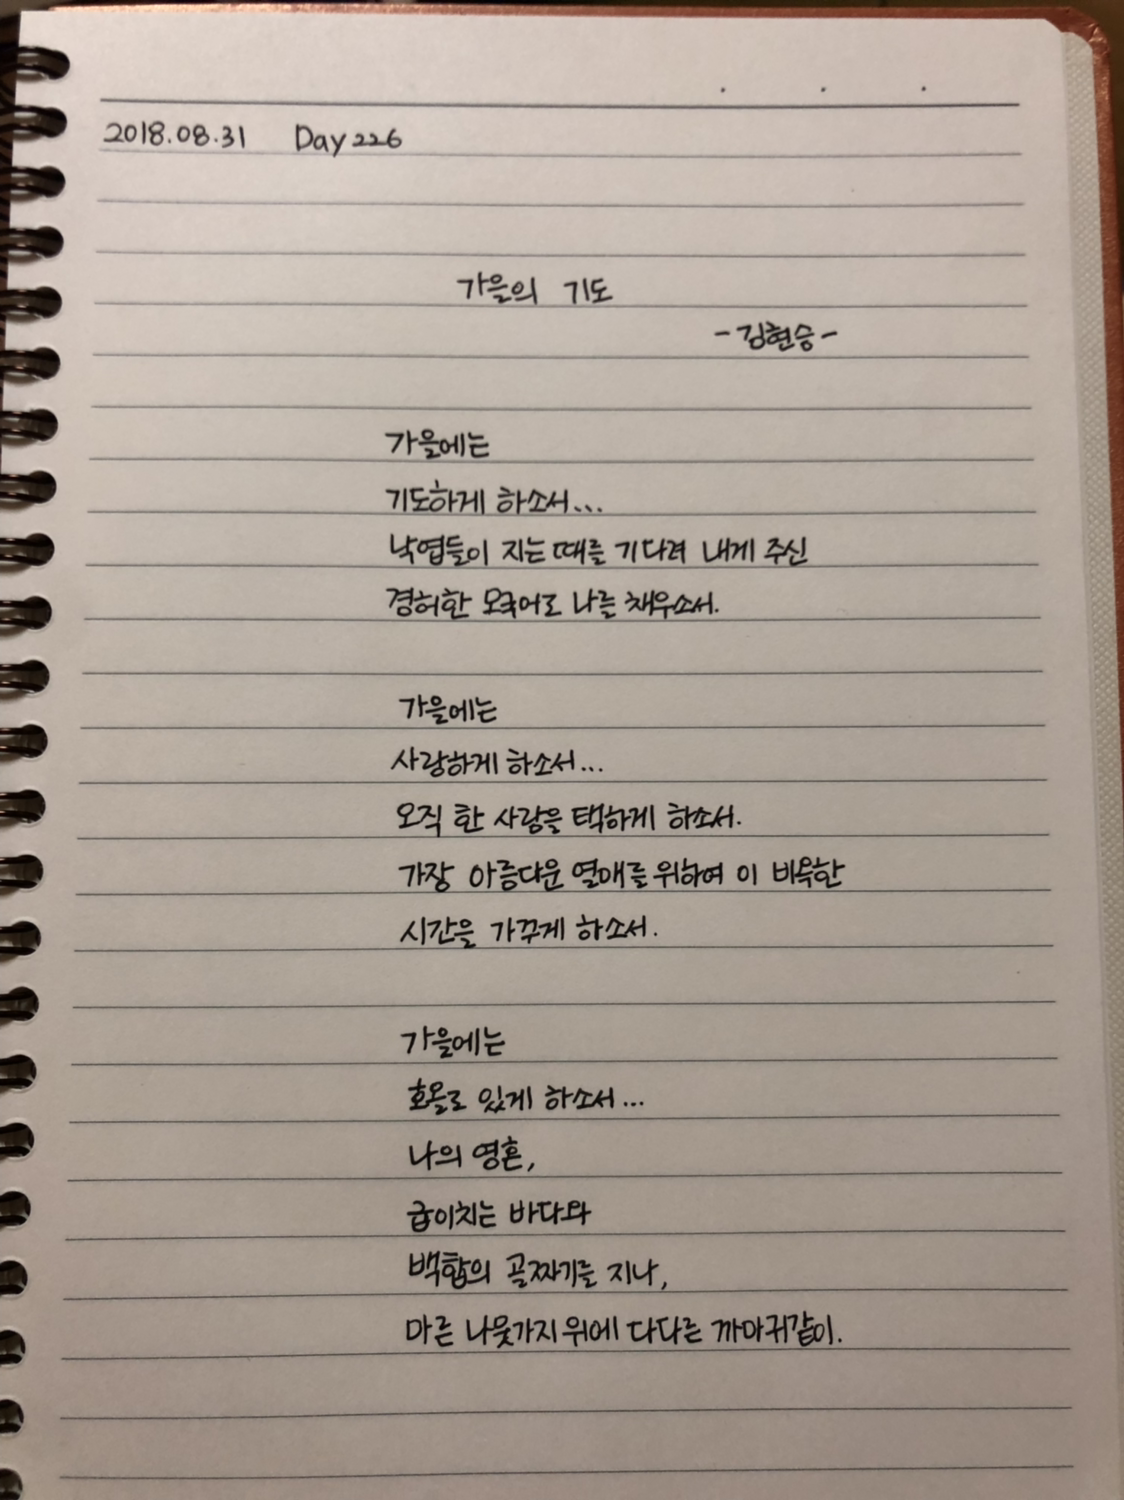 2018.08.31 Day 226
가을의 기도
-김현승-
가을에는
기도하게 하소서...
낙엽들이 지는 때를 기다려 내게 주신
경허한 모국어로 나를 채우소서.
가을에는
사랑하게 하소서...
오직 한 사람을 택하게 하소서.
가장 아름다운 열매를 위하여 이 비옥한
시간을 가꾸게 하소서.
가을에는
호올로 있게 하소서...
나의 영혼,
굽이치는 바다와
백합의 골짜기를 지나,
마른 나뭇가지 위에 다다른 까마귀같이.